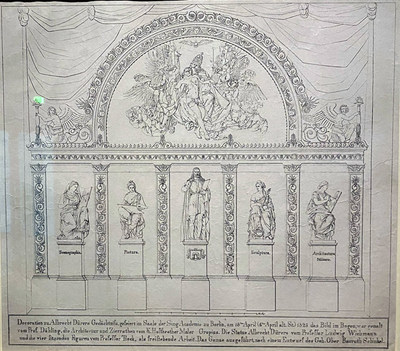 Scenographia.
Pictura.
Sculptura.
Architectura
militaris.
Decoration zu Albrecht Dürers Gedächtnisfeier im Saale der Sing-Academie zu Berlin, am 18ten April 1828 das Bild im Bogen war gemalt
vom Prof. Dähling, die Architectur und Zierrathen vom K. Hoftheater Maler Gropius. Die Statue Albrecht Dürers vom Professor Ludwig Wichmann
und die vier sitzenden Figuren vom Professor Tieck, als freistehende Arbeit. Das Ganze ausgeführt nach einem Entwurf des Geh. Ober Baurath Schinkel.